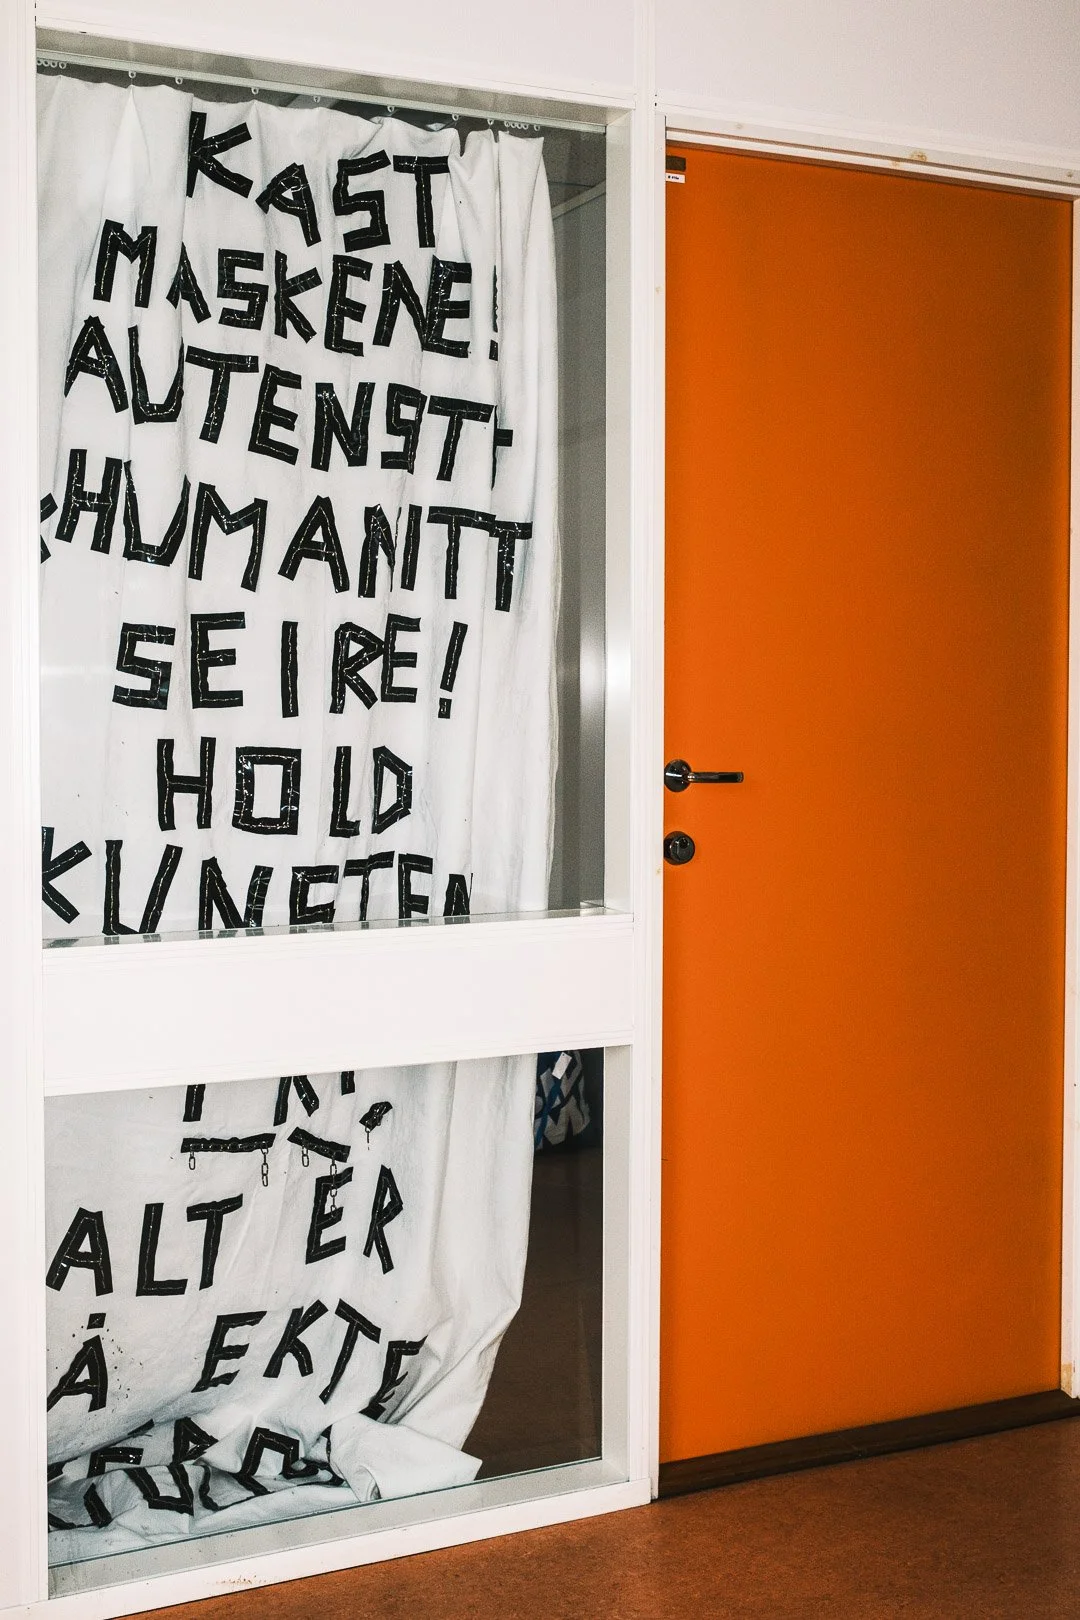 KAST
MASKENE!
AUTENST-
HUMANITT
SEIRE!
HOLD
KUNSTEN
FRI!
ALT ER
Å EKTE